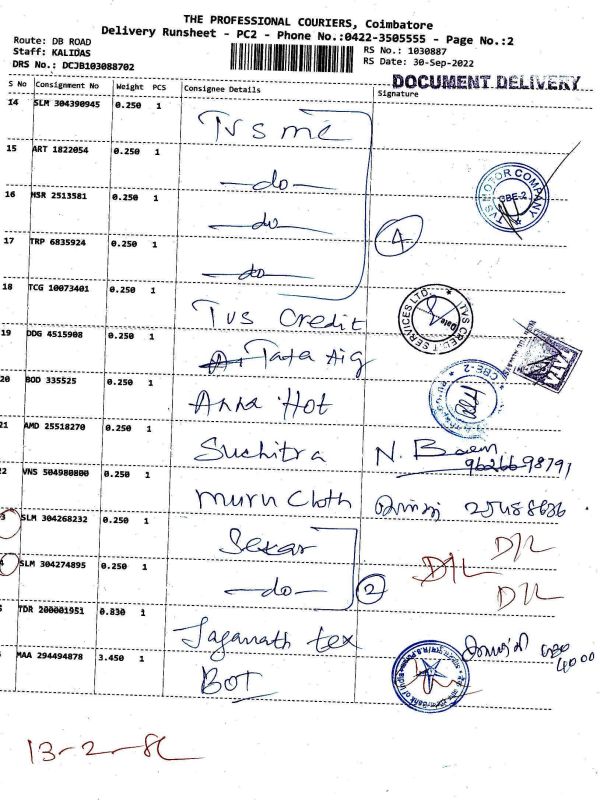 THE PROFESSIONAL COURIERS, Coimbatore
Delivery Runsheet - PC2 - Phone No.:0422-3505555 - Page No.:2
Route: DB ROAD
Staff: KALIDAS
DRS No.: DCJB103088702
RS No.: 1030887
RS Date: 30-Sep-2022
DOCUMENT DELIVERY
S No Consignment No Weight PCS Consignee Details Signature
14 SLM 304390945 0.250 1 TVS mc
15 ART 1822054 0.250 1 -do-
16 NSR 2513581 0.250 1 -do-
17 TRP 6835924 0.250 1 -do-
4
TVS MOTOR COMPANY
CBE-2
18 TCG 10073401 0.250 1 TVS Credit
TVS CREDIT SERVICES LTD.
19 DDG 4515908 0.250 1 Tata Aig
20 BOD 335525 0.250 1 Anna Hot
CBE-2
21 AMD 25518270 0.250 1 Suchitra N.
22 VNS 504980800 0.250 1 Muru Cloth
3 SLM 304268232 0.250 1 Sekar D/L
4 SLM 304274895 0.250 1 -do- 2 D/L D/L
TDR 200001951 0.830 1 Jaganath tex
MAA 294494878 3.450 1 BOT
4000